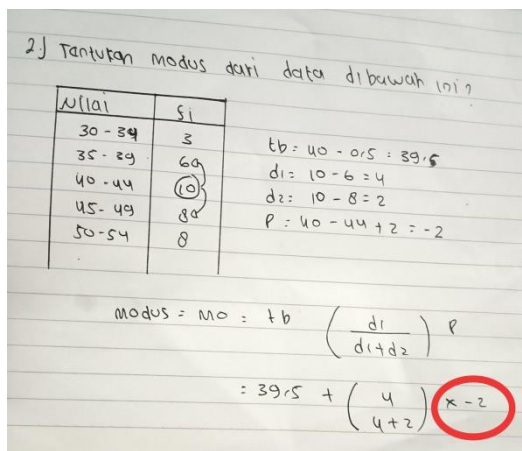 2.) Tantukan modus dari data dibawah ini?
Nilai fi
30 - 34 3
35 - 39 6
40 - 44 10
45 - 49 8
50 - 54 8
tb = 40 - 0,5 = 39,5
d1 = 10 - 6 = 4
d2 = 10 - 8 = 2
P = 40 - 44 + 2 = -2
modus = Mo = tb (d1 / d1+d2) P
= 39,5 + (4 / 4+2) x - 2